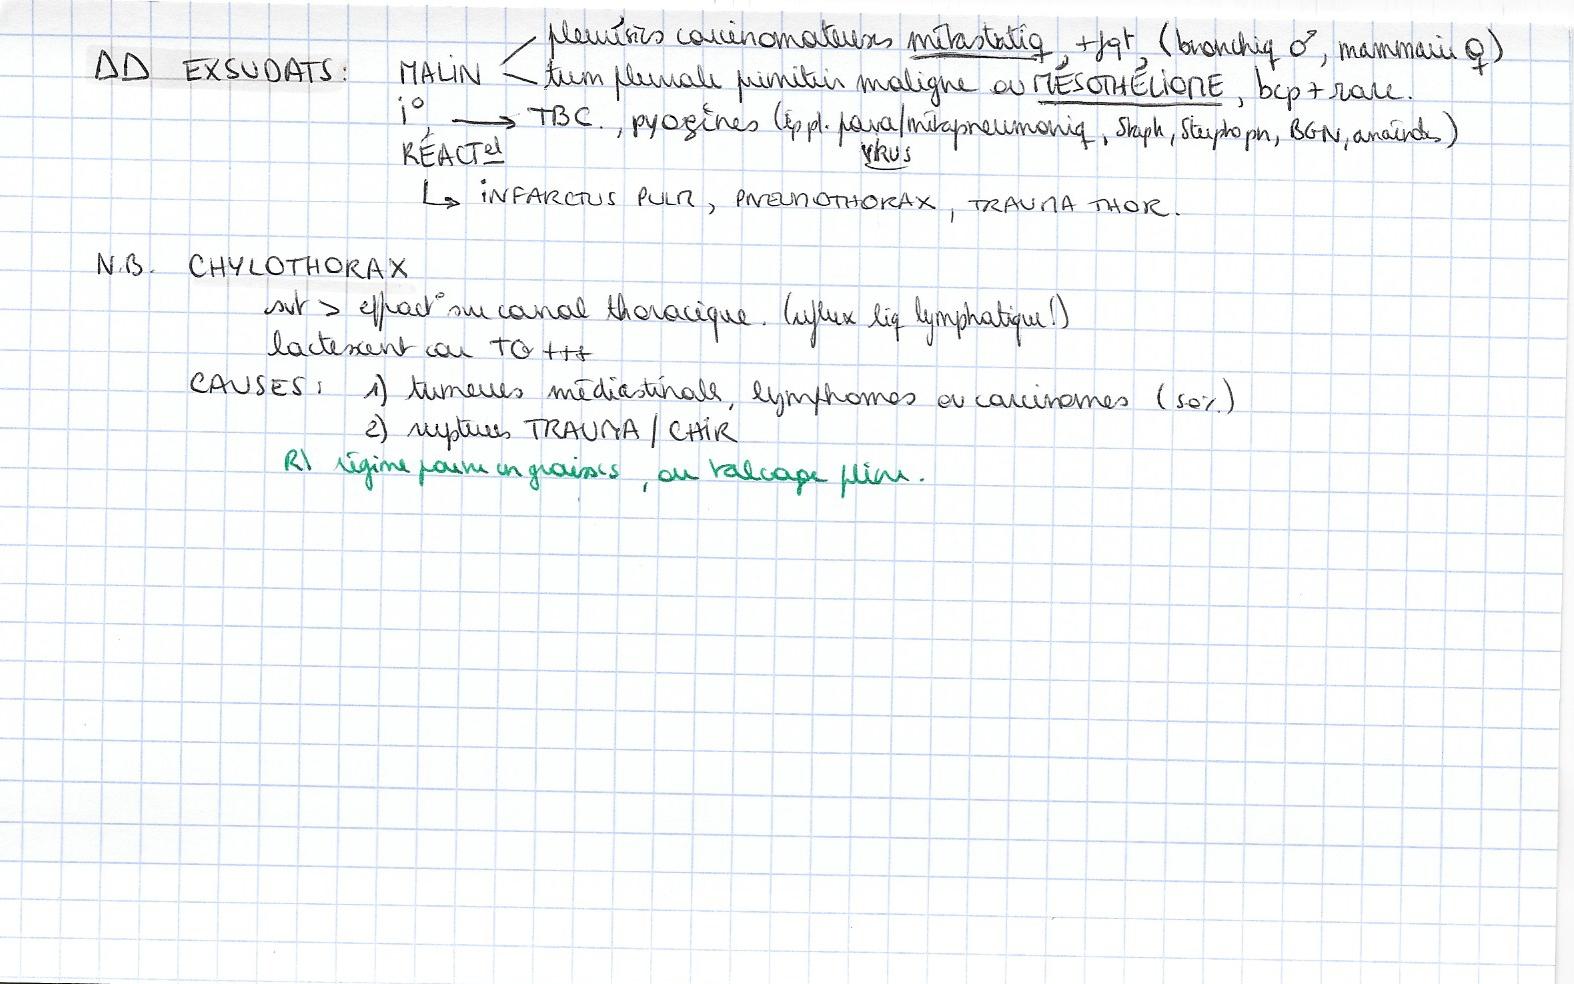 ΔD EXSUDATS: MALIN < pleurésies carcinomateuses métastatiq, + fqt, (bronchiq ♂, mammaire ♀)
tum pleurale primitive maligne ou MÉSOTHÉLIOME, bcp + rare.
i° → TBC., pyogènes (éppl. para/métapneumoniq, Staph, Streptopn, BGN, anaérobs)
RÉACTel virus
↳ INFARCTUS PULM, PNEUMOTHORAX, TRAUMA THOR.
N.B. CHYLOTHORAX
svt > effract° su canal thoracique. (reflux liq lymphatique!)
lactescent car TG +++
CAUSES: 1) tumeurs médiastinale, lymphomes ou carcinomes (50%)
2) ruptures TRAUMA / CHIR
R\ régime pauvre en graisses, ou talcage pleur.